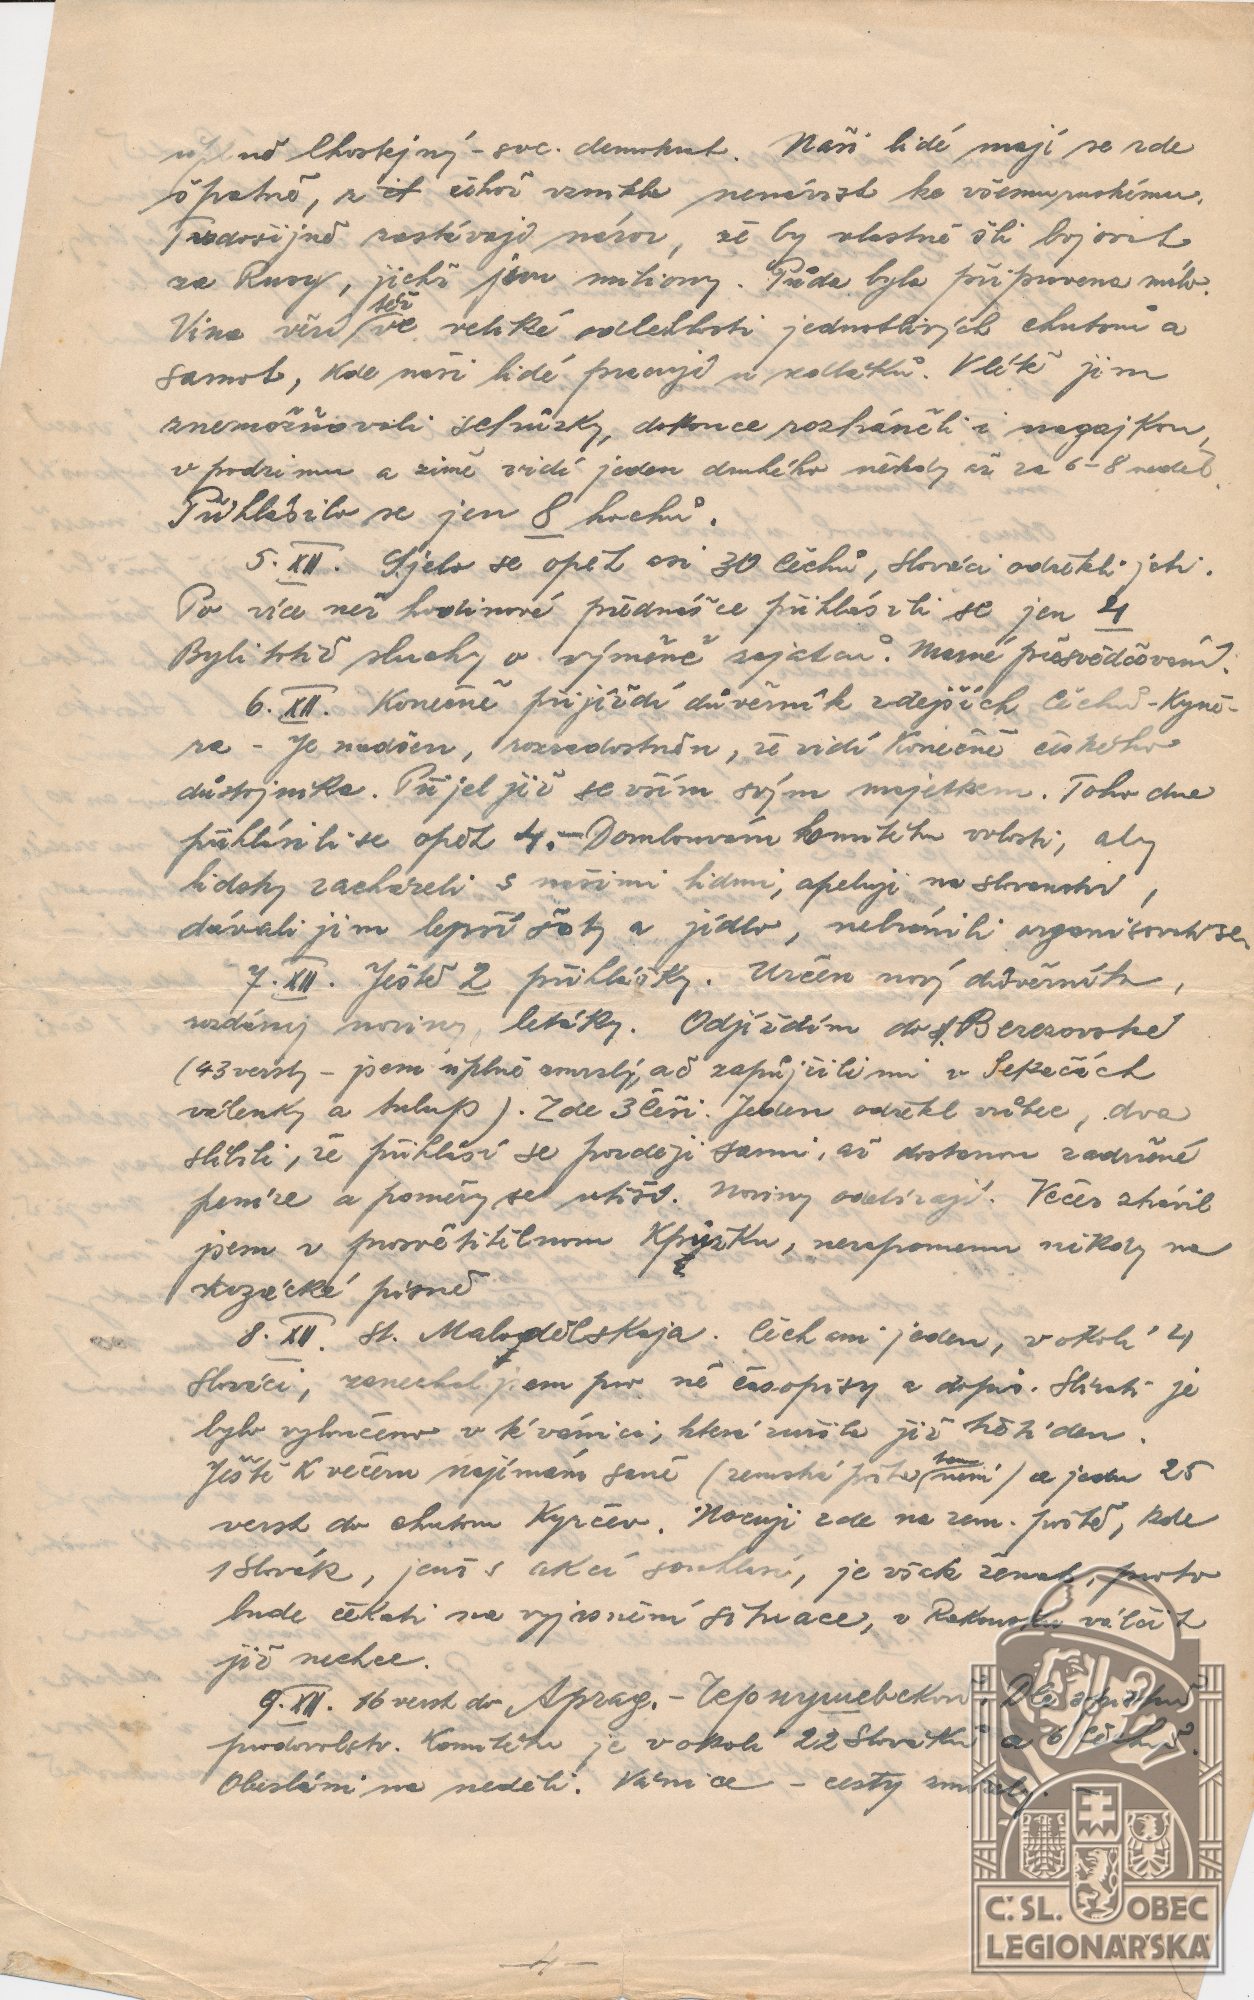 úplně lhostejný - soc. demokrat. Naši lidé mají se zde
špatně, z čehož vznikla nenávist ke všemu ruskému.
Tvrdošíjně zastávají názor, že by vlastně šli bojovat
za Rusy, jichž jsou miliony. Půda byla připravena málo.
Vina vězí též ve veliké odlehlosti jednotlivých chutorů a
samot, kde naši lidé pracují u sedláků. V létě jim
znemožňovali schůzky, dokonce rozháněli i nagajkou,
v podzimu a zimě vidí jeden druhého někdy až za 6-8 neděl.
Přihlásilo se jen 8 hochů.
5. XII. Sjelo se opět asi 30 Čechů, Slováci odřekli jeti.
Po více než hodinové přednášce přihlásili se jen 4
Byli totiž sluchy o výměně zajatců. Marné přesvědčování.
6. XII. Konečně přijíždí důvěrník zdejších Čechů - Kyně-
ra - Je nadšen, rozradostněn, že vidí konečně českého
důstojníka. Přijel již se vším svým majetkem. Toho dne
přihlásili se opět 4. - Domlouvám komitétu volosti, aby
lidsky zacházeli s našimi lidmi, apeluji na slovanství,
dávali jim lepší šaty a jídlo, nebránili organisovati se.
7. XII. Ještě 2 přihlášky. Určen nový důvěrník,
rozdány noviny, letáky. Odjíždím do st. Berezovské
(43 versty - jsem úplně zmrzlý, ač zapůjčili mi v Sekačích
válenky a tulup). Zde 3 Češi. Jeden odřekl vůbec, dva
slíbili, že přihlásí se později sami, až dostanou zadržené
peníze a poměry se utiší. Noviny odebírají. Večer strávil
jsem v prosvětitělnom kružku, nezapomenu nikdy na
kozácké písně
8. XII. st. Malodělskaja. Čech ani jeden, v okolí 4
Slováci, zanechal jsem pro ně časopisy a dopis. Sbírati je
bylo vyloučeno v té vánici, která zuřila již třetí den.
Ještě k večeru najímám saně (zemská pošta tam není) a jedu 25
verst do chutoru Kyrčev. Nocuji zde na zem. poště, kde
1 Slovák, jenž s akcí souhlasí, je však ženat, proto
bude čekati na vyjasnění situace, v Rakousku válčit
již nechce.
9. XII. 16 verst do Aprag. - Dle
prodovolstv. Komitétu je v okolí 22 Slováků a 6 Čechů.
Obesláni na neděli. Vánice - cesty zmizely.
-4-
Č. SL. OBEC
LEGIONÁŘSKÁ